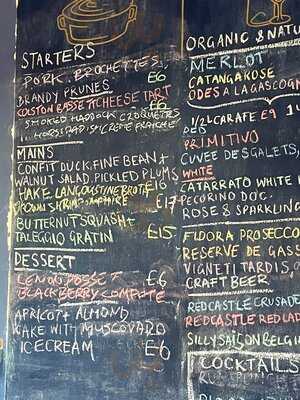 STARTERS
PORK BROCHETTES,
BRANDY PRUNES £6
COLSTON BASSETT CHEESE TART £6
SMOKED HADDOCK CROQUETTES
HORSERADISH CREME FRAICHE
MAINS
CONFIT DUCK, FINE BEAN &
WALNUT SALAD, PICKLED PLUMS £16
HAKE, LANGOUSTINE BROTH
SAMPHIRE £17
BUTTERNUT SQUASH &
TALEGGIO GRATIN £15
DESSERT
LEMON POSSET £6
BLACKBERRY COMPOTE
APRICOT & ALMOND
CAKE WITH MUSCOVADO
ICECREAM £6
ORGANIC & NATU
MERLOT
CATANGAROSE
ODES A LA GASCOGN
1/2L CARAFE £9
RED
PRIMITIVO
CUVEE DES GALETS,
WHITE
CATARRATO WHITE
PECORINO DOC.
ROSE & SPARKLING
FIDORA PROSECCO
RESERVE DE GASS
VIGNETI TARDIS,
CRAFT BEER
REDCASTLE CRUSADE
REDCASTLE RED LAD
SILLY SAISON BELGI
COCKTAILS